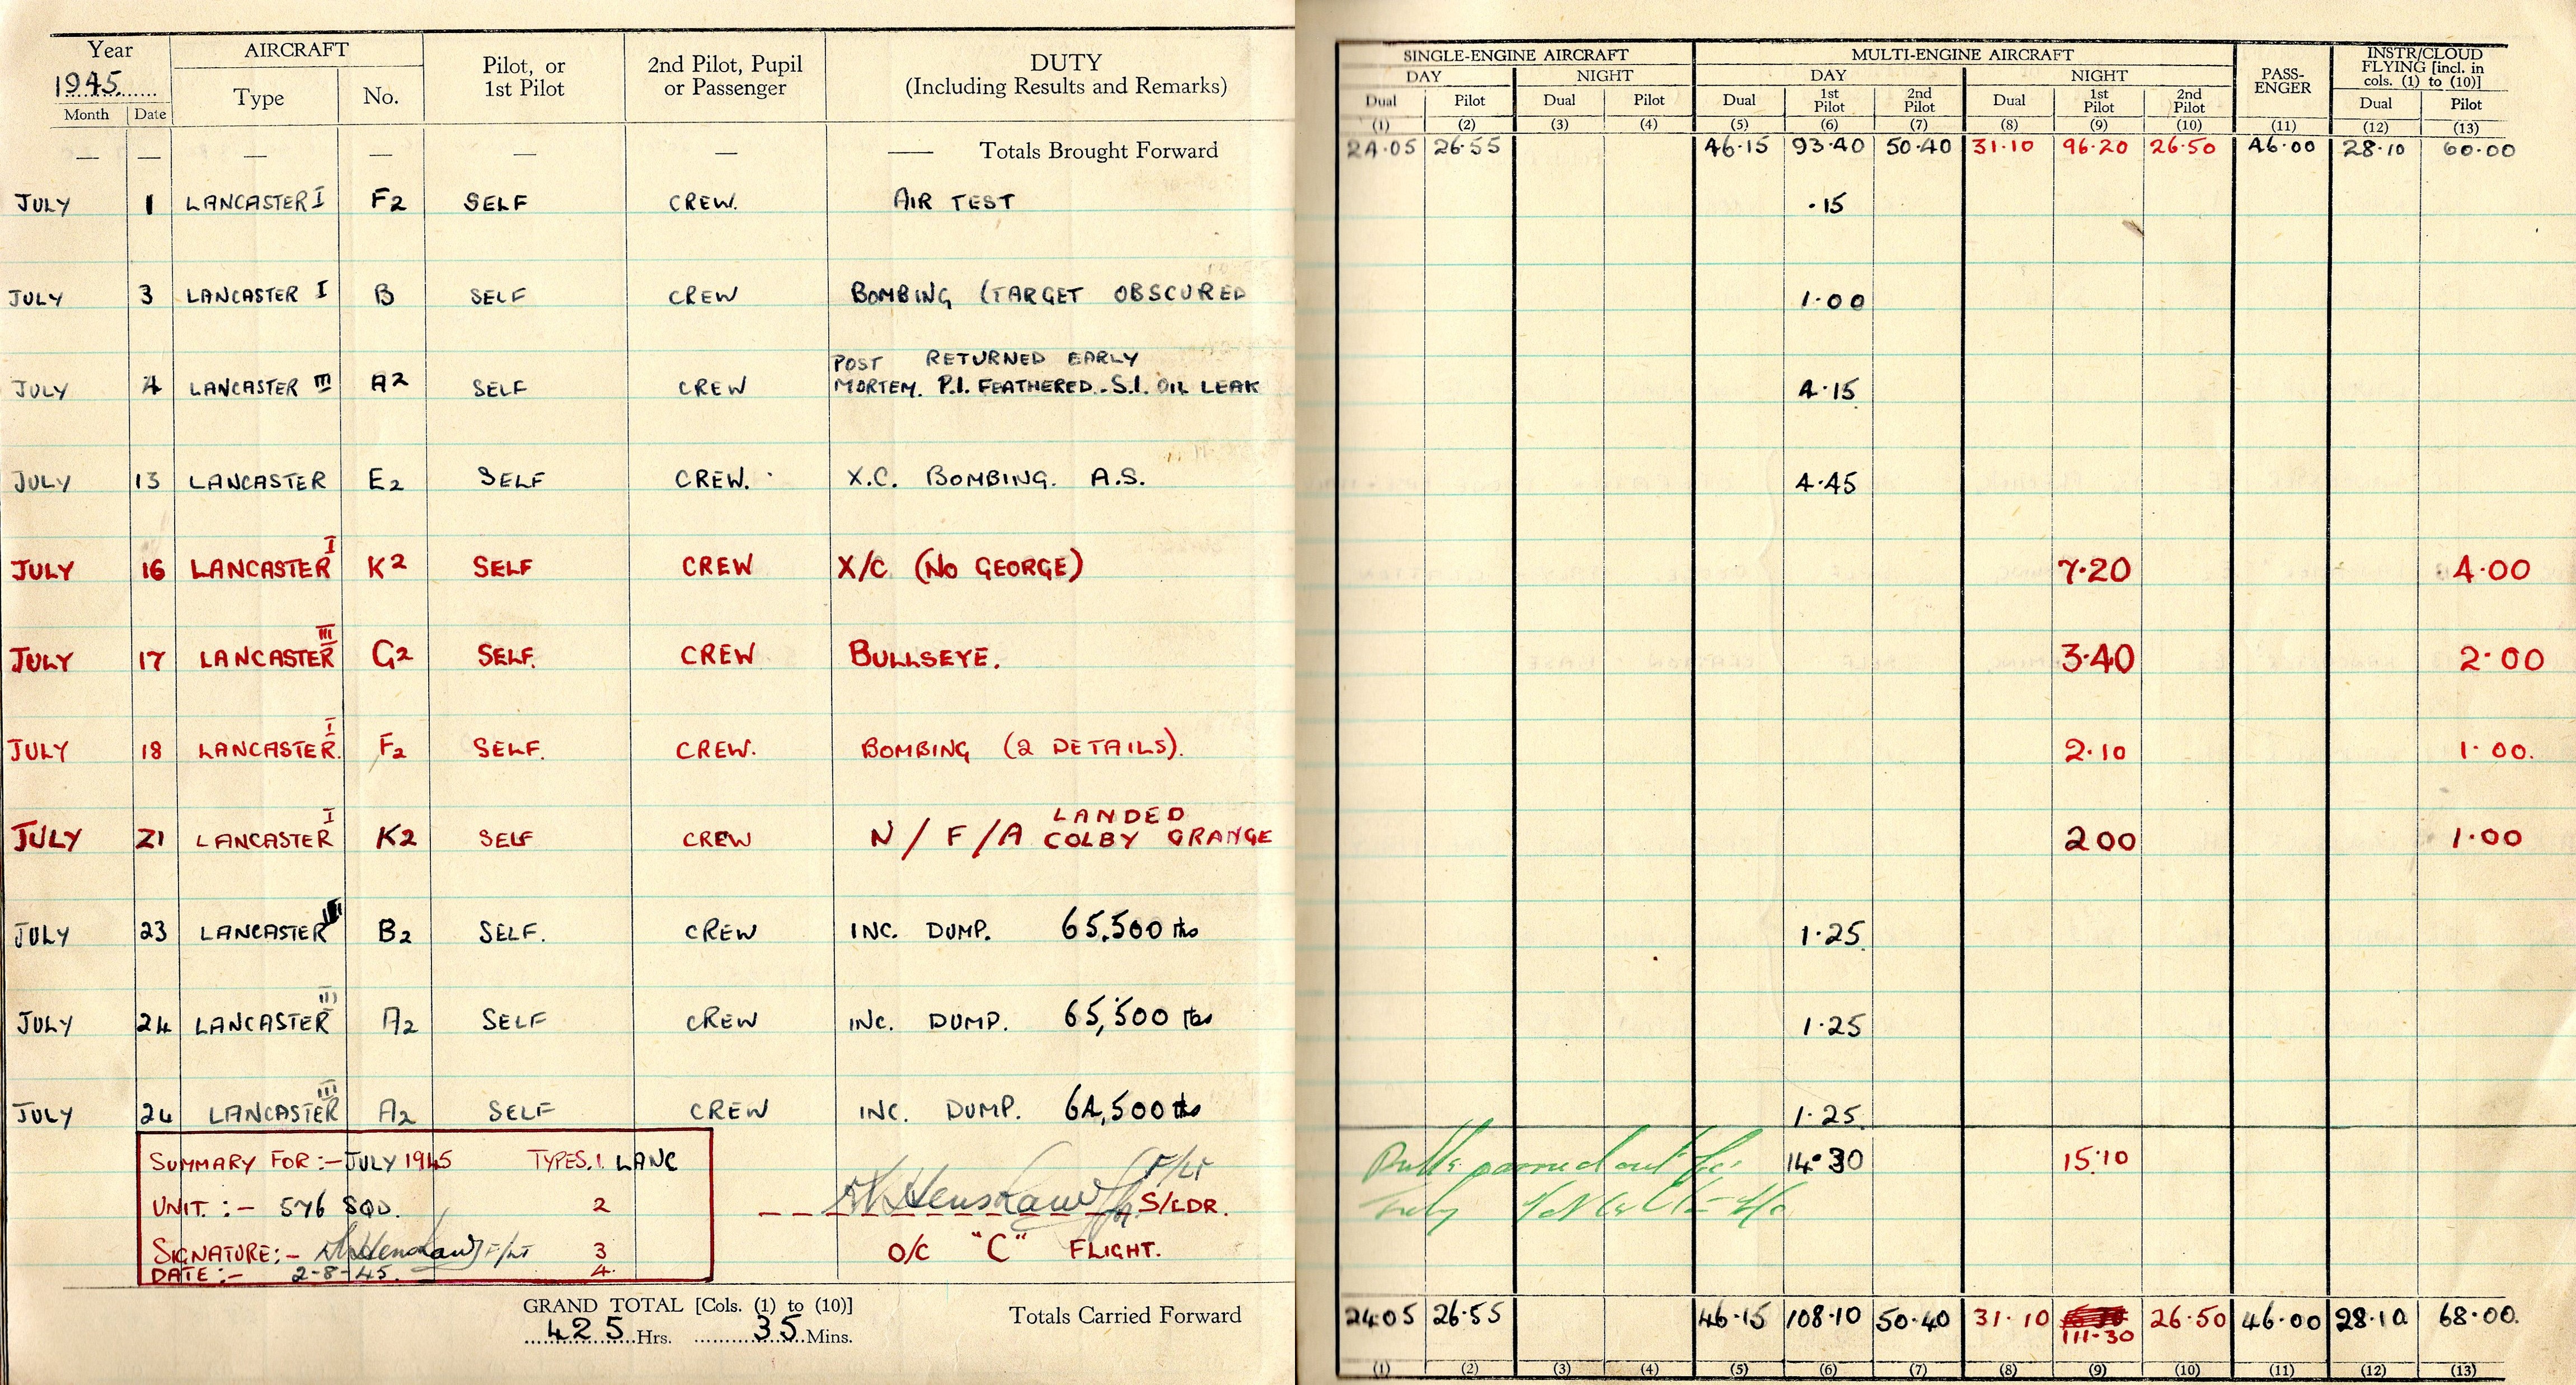 Year AIRCRAFT Pilot, or 1st Pilot 2nd Pilot, Pupil or Passenger DUTY (Including Results and Remarks)
1945 Type No.
Month Date
— — — — — — — Totals Brought Forward
JULY 1 LANCASTER I F2 SELF CREW. AIR TEST
JULY 3 LANCASTER I B SELF CREW BOMBING (TARGET OBSCURED
JULY 4 LANCASTER III A2 SELF CREW POST RETURNED EARLY
MORTEM. P.I. FEATHERED.-S.I. OIL LEAK
JULY 13 LANCASTER E2 SELF CREW. X.C. BOMBING. A.S.
JULY 16 LANCASTER I K2 SELF CREW X/C (NO GEORGE)
JULY 17 LANCASTER III G2 SELF. CREW BULLSEYE.
JULY 18 LANCASTER. I F2 SELF. CREW. BOMBING (2 DETAILS).
JULY 21 LANCASTER I K2 SELF CREW N/F/A LANDED
COLBY GRANGE
JULY 23 LANCASTER III B2 SELF. CREW INC. DUMP. 65,500 lbs
JULY 24 LANCASTER III A2 SELF CREW INC. DUMP. 65,500 lbs
JULY 24 LANCASTER III A2 SELF CREW INC. DUMP. 64,500 lbs
SUMMARY FOR:- JULY 1945 TYPES. 1. LANC
UNIT:- 576 SQD. 2
SIGNATURE:- Henshaw F/LT 3
DATE:- 2-8-45. 4.
Henshaw F/LT
S/LDR.
O/C "C" FLIGHT.
GRAND TOTAL [Cols. (1) to (10)] Totals Carried Forward
425 Hrs. 35 Mins.
SINGLE-ENGINE AIRCRAFT MULTI-ENGINE AIRCRAFT PASS-ENGER INSTR/CLOUD FLYING [incl. in cols. (1) to (10)]
DAY NIGHT DAY NIGHT
Dual Pilot Dual Pilot Dual 1st Pilot 2nd Pilot Dual 1st Pilot 2nd Pilot Dual Pilot
(1) (2) (3) (4) (5) (6) (7) (8) (9) (10) (11) (12) (13)
24.05 26.55 46.15 93.40 50.40 31.10 96.20 26.50 46.00 28.10 60.00
.15
1.00
4.15
4.45
7.20 4.00
3.40 2.00
2.10 1.00.
2 00 1.00
1.25
1.25
1.25
14.30 15.10
out for
July
24 05 26.55 46.15 108.10 50.40 31.10 111.30 26.50 46.00 28.10 68.00.
(1) (2) (3) (4) (5) (6) (7) (8) (9) (10) (11) (12) (13)